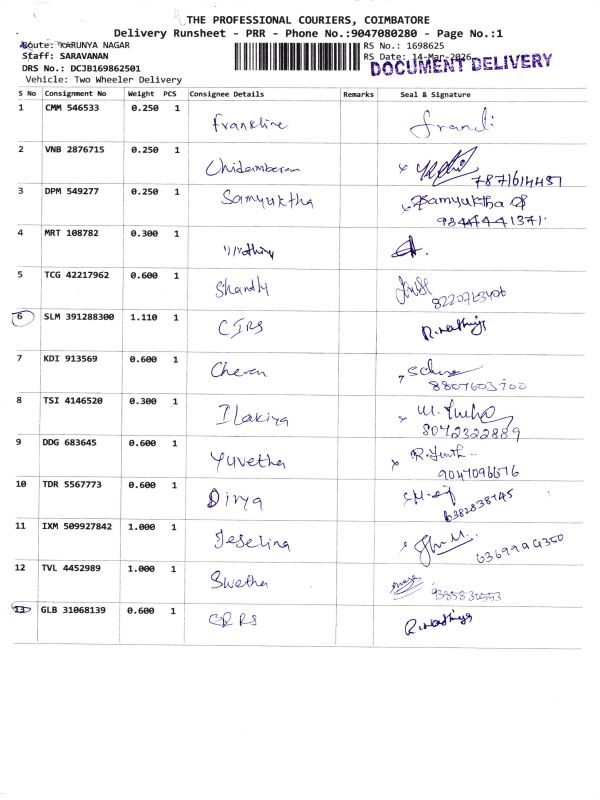 THE PROFESSIONAL COURIERS, COIMBATORE
Delivery Runsheet - PRR - Phone No.:9047080280 - Page No.:1
Route: KARUNYA NAGAR
RS No.: 1698625
Staff: SARAVANAN
RS Date: 14-Mar-2026
DOCUMENT DELIVERY
DRS No.: DCJB169862501
Vehicle: Two Wheeler Delivery
S No Consignment No Weight PCS Consignee Details Remarks Seal & Signature
1 CMM 546533 0.250 1 Frankline
2 VNB 2876715 0.250 1 Chidambaram
7871614451
3 DPM 549277 0.250 1 Samyuktha Samyuktha
4 MRT 108782 0.300 1
5 TCG 42217962 0.600 1
6 SLM 391288300 1.110 1 CIRS
7 KDI 913569 0.600 1 Cheran
8 TSI 4146520 0.300 1 Ilakiya
8072322889
9 DDG 683645 0.600 1 Yuvetha
10 TDR 5567773 0.600 1 Divya
6382838745
11 IXM 509927842 1.000 1 Jeselina
12 TVL 4452989 1.000 1 Swetha
13 GLB 31068139 0.600 1